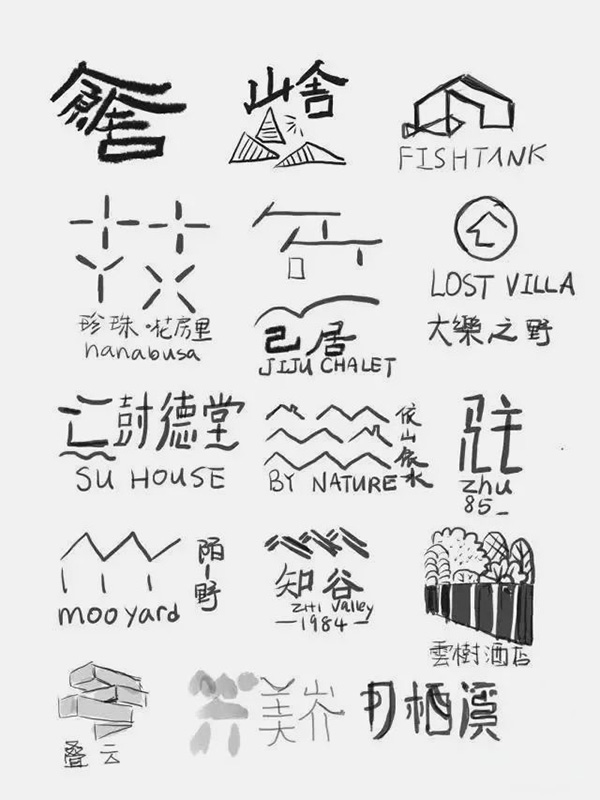 山舍
FISHTANK
珍珠·花房里
hanabusa
己居
JIJU CHALET
LOST VILLA
大樂之野
德堂
SU HOUSE
依山依水
BY NATURE
zhu
85_
moo yard
陌野
知谷
ZHI valley
—1984—
雲樹酒店
叠云
美岕
栖溪